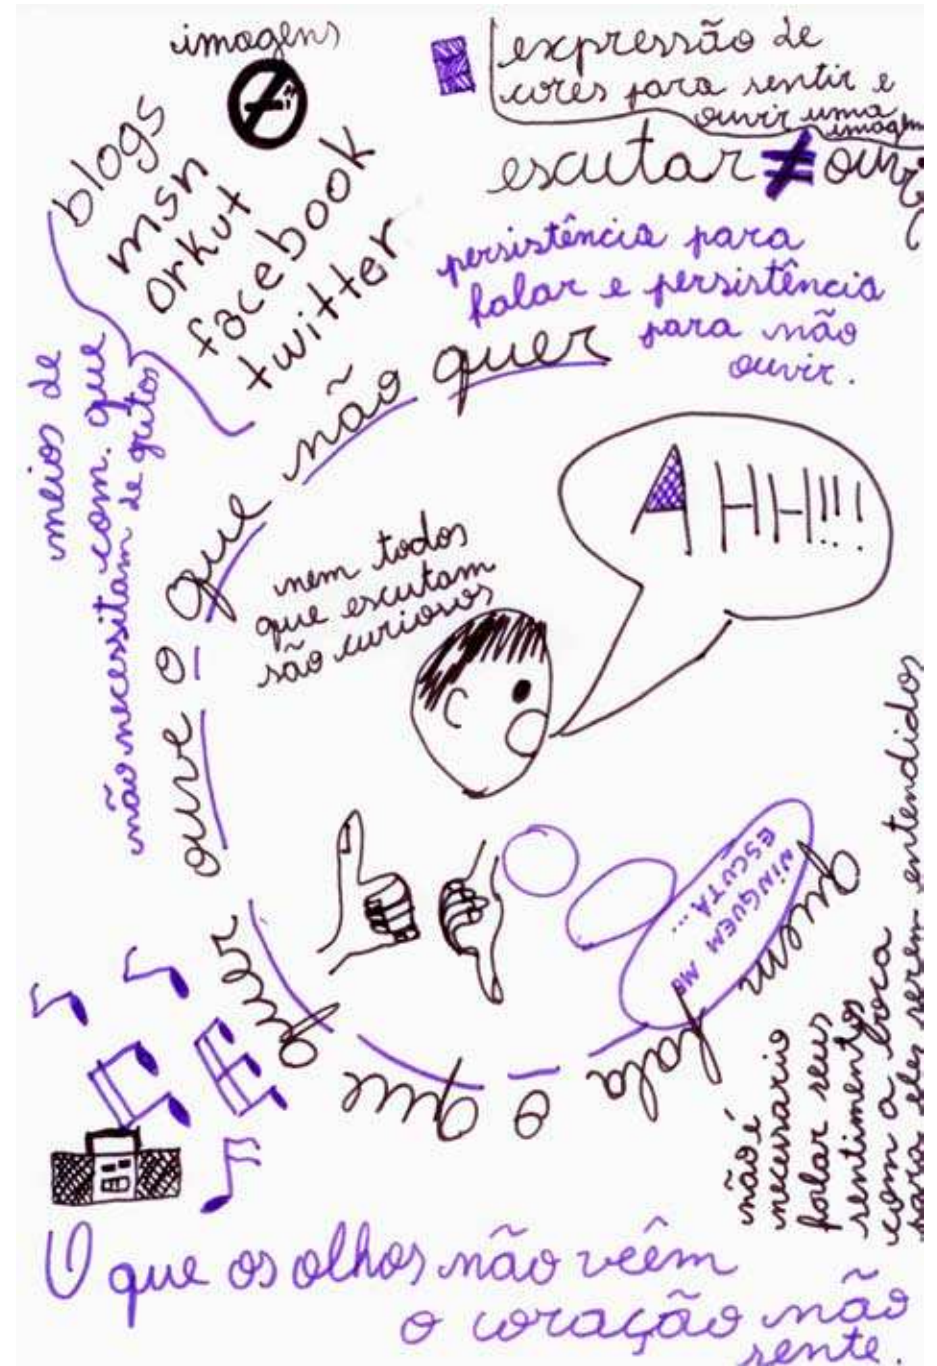 imagens
blogs
msn
orkut
facebook
twitter
expressão de
cores para sentir e
ouvir uma
imagem
escutar ≠ ouvir
persistência para
falar e persistência
para não
ouvir.
meios de
com. que
não necessitam de gritos
AHH!!!
nem todos
que escutam
são curiosos
quem fala o que quer ouve o que não quer
NINGUEM ME
ESCUTA...
não é
necessario
falar seus
sentimentos
com a boca
para eles serem entendidos
O que os olhos não veêm
o coração não
sente.